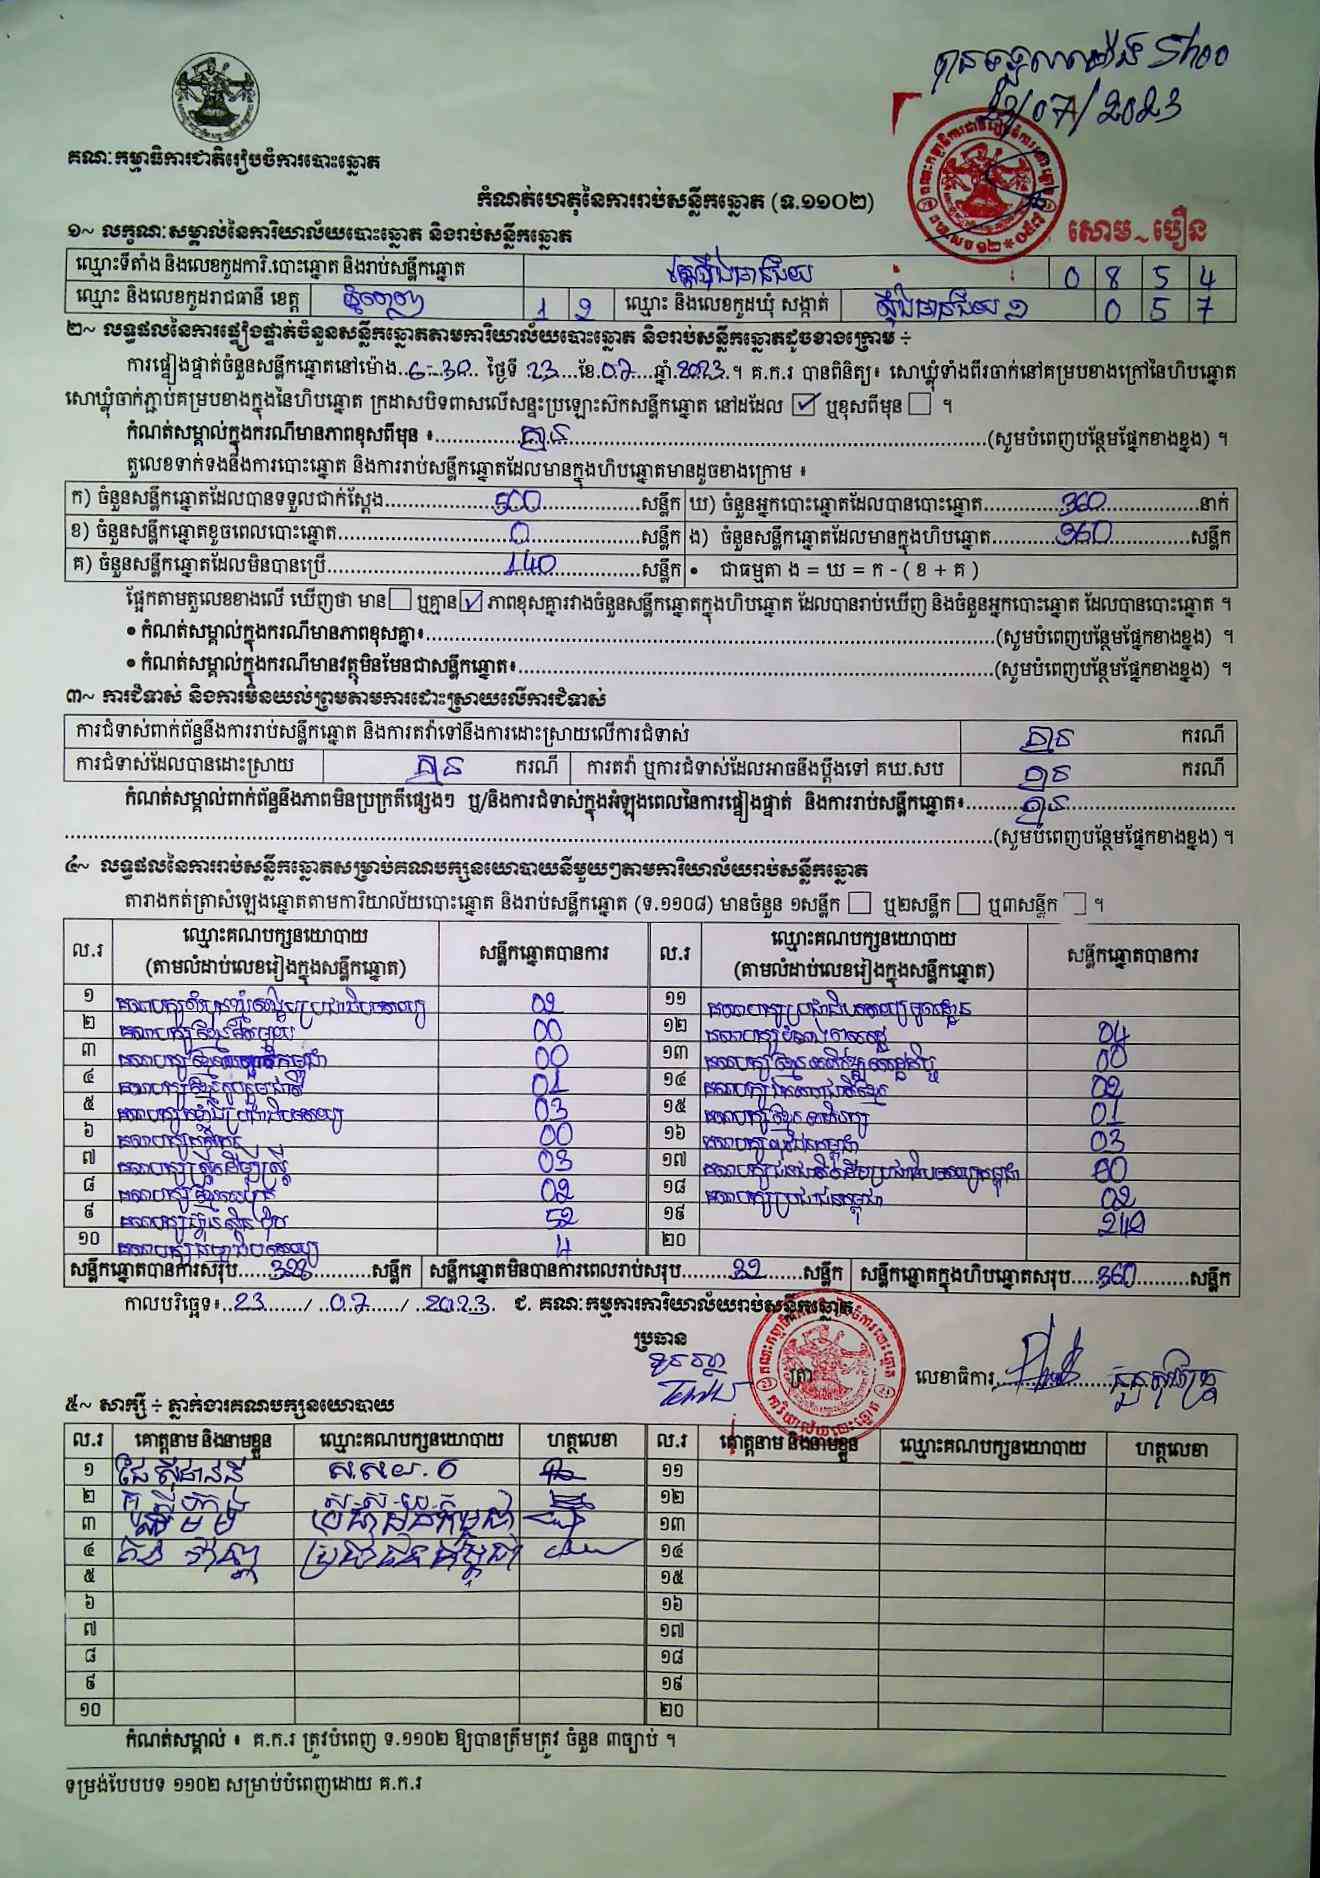 បានទទួលម៉ោង 5h00
23/07/2023
គណៈកម្មាធិការជាតិរៀបចំការបោះឆ្នោត
កំណត់ហេតុនៃការរាប់សន្លឹកឆ្នោត (ទ.១១០២)
សោម~បឿន
១~ លក្ខណៈសម្គាល់នៃការិយាល័យបោះឆ្នោត និងរាប់សន្លឹកឆ្នោត
ឈ្មោះទីតាំង និងលេខកូដការិ.បោះឆ្នោត និងរាប់សន្លឹកឆ្នោត 0 8 5 4
ឈ្មោះ និងលេខកូដរាជធានី ខេត្ត ភ្នំពេញ 1 2 ឈ្មោះ និងលេខកូដឃុំ សង្កាត់ ស្ទឹងមានជ័យ ១ 0 5 7
២~ លទ្ធផលនៃការផ្ទៀងផ្ទាត់ចំនួនសន្លឹកឆ្នោតតាមការិយាល័យបោះឆ្នោត និងរាប់សន្លឹកឆ្នោតដូចខាងក្រោម ÷
ការផ្ទៀងផ្ទាត់ចំនួនសន្លឹកឆ្នោតនៅម៉ោង..6-30.. ថ្ងៃទី .23....ខែ.07...ឆ្នាំ.2023.។ គ.ក.រ បានពិនិត្យ៖ សោឃ្លុំទាំងពីរចាក់នៅគម្របខាងក្រៅនៃហិបឆ្នោត
សោឃ្លុំចាក់ភ្ជាប់គម្របខាងក្នុងនៃហិបឆ្នោត ក្រដាសបិទពាសលើសន្ទះប្រឡោះស៊កសន្លឹកឆ្នោត នៅដដែល ☑ ឬខុសពីមុន ☐ ។
កំណត់សម្គាល់ក្នុងករណីមានភាពខុសពីមុន ៖..........គ្មាន..........(សូមបំពេញបន្ថែមផ្នែកខាងខ្នង) ។
តួលេខទាក់ទងនឹងការបោះឆ្នោត និងការរាប់សន្លឹកឆ្នោតដែលមានក្នុងហិបឆ្នោតមានដូចខាងក្រោម ៖
ក) ចំនួនសន្លឹកឆ្នោតដែលបានទទួលជាក់ស្តែង..........500..........សន្លឹក ឃ) ចំនួនអ្នកបោះឆ្នោតដែលបានបោះឆ្នោត..........360..........នាក់
ខ) ចំនួនសន្លឹកឆ្នោតខូចពេលបោះឆ្នោត..........0..........សន្លឹក ង) ចំនួនសន្លឹកឆ្នោតដែលមានក្នុងហិបឆ្នោត..........360..........សន្លឹក
គ) ចំនួនសន្លឹកឆ្នោតដែលមិនបានប្រើ..........140..........សន្លឹក • ជាធម្មតា ង = ឃ = ក - ( ខ + គ )
ផ្អែកតាមតួលេខខាងលើ ឃើញថា មាន☐ ឬគ្មាន☑ ភាពខុសគ្នារវាងចំនួនសន្លឹកឆ្នោតក្នុងហិបឆ្នោត ដែលបានរាប់ឃើញ និងចំនួនអ្នកបោះឆ្នោត ដែលបានបោះឆ្នោត ។
• កំណត់សម្គាល់ក្នុងករណីមានភាពខុសគ្នា៖....................(សូមបំពេញបន្ថែមផ្នែកខាងខ្នង) ។
• កំណត់សម្គាល់ក្នុងករណីមានវត្ថុមិនមែនជាសន្លឹកឆ្នោត៖....................(សូមបំពេញបន្ថែមផ្នែកខាងខ្នង) ។
៣~ ការជំទាស់ និងការមិនយល់ព្រមតាមការដោះស្រាយលើការជំទាស់
ការជំទាស់ពាក់ព័ន្ធនឹងការរាប់សន្លឹកឆ្នោត និងការតវ៉ាទៅនឹងការដោះស្រាយលើការជំទាស់ គ្មាន ករណី
ការជំទាស់ដែលបានដោះស្រាយ គ្មាន ករណី ការតវ៉ា ឬការជំទាស់ដែលអាចនឹងប្តឹងទៅ គឃ.សប គ្មាន ករណី
កំណត់សម្គាល់ពាក់ព័ន្ធនឹងភាពមិនប្រក្រតីផ្សេងៗ ឬ/និងការជំទាស់ក្នុងអំឡុងពេលនៃការផ្ទៀងផ្ទាត់ និងការរាប់សន្លឹកឆ្នោត៖..........គ្មាន..........
....................(សូមបំពេញបន្ថែមផ្នែកខាងខ្នង) ។
៤~ លទ្ធផលនៃការរាប់សន្លឹកឆ្នោតសម្រាប់គណបក្សនយោបាយនីមួយៗតាមការិយាល័យរាប់សន្លឹកឆ្នោត
តារាងកត់ត្រាសំឡេងឆ្នោតតាមការិយាល័យបោះឆ្នោត និងរាប់សន្លឹកឆ្នោត (ទ.១១០៨) មានចំនួន ១សន្លឹក ☐ ឬ២សន្លឹក ☐ ឬ៣សន្លឹក ☐ ។
ល.រ ឈ្មោះគណបក្សនយោបាយ (តាមលំដាប់លេខរៀងក្នុងសន្លឹកឆ្នោត) សន្លឹកឆ្នោតបានការ ល.រ ឈ្មោះគណបក្សនយោបាយ (តាមលំដាប់លេខរៀងក្នុងសន្លឹកឆ្នោត) សន្លឹកឆ្នោតបានការ
១ គណបក្សសំបុកឃ្មុំសង្គមប្រជាធិបតេយ្យ 02 ១១ គណបក្សប្រជាធិបតេយ្យមូលដ្ឋាន
២ គណបក្សខ្មែរតែមួយ 00 ១២ 04
៣ 00 ១៣ 00
៤ គណបក្សខ្មែររួបរួមជាតិ 01 ១៤ 02
៥ គណបក្សកម្លាំងប្រជាធិបតេយ្យ 03 ១៥ 01
៦ គណបក្សកសិករ 00 ១៦ 03
៧ គណបក្សស្ត្រីដើម្បីស្ត្រី 03 ១៧ 00
៨ 02 ១៨ គណបក្សប្រជាជនកម្ពុជា 02
៩ គណបក្សហ៊្វុនស៊ិនប៉ិច 52 ១៩ 242
១០ គណបក្សធម្មាធិបតេយ្យ 4 ២០
សន្លឹកឆ្នោតបានការសរុប......323..........សន្លឹក សន្លឹកឆ្នោតមិនបានការពេលរាប់សរុប........22......សន្លឹក សន្លឹកឆ្នោតក្នុងហិបឆ្នោតសរុប....360.........សន្លឹក
កាលបរិច្ឆេទ៖..23......./ ..07...../ ..2023. ជ. គណៈកម្មការការិយាល័យរាប់សន្លឹកឆ្នោត
ប្រធាន
ត្រា
លេខាធិការ
៥~ សាក្សី ÷ ភ្នាក់ងារគណបក្សនយោបាយ
ល.រ គោត្តនាម និងនាមខ្លួន ឈ្មោះគណបក្សនយោបាយ ហត្ថលេខា ល.រ គោត្តនាម និងនាមខ្លួន ឈ្មោះគណបក្សនយោបាយ ហត្ថលេខា
១ ស.ស.យ.ក ១១
២ ស.ស.យ.ក ១២
៣ ប្រជាជនកម្ពុជា ១៣
៤ ប្រជាជនកម្ពុជា ១៤
៥ ១៥
៦ ១៦
៧ ១៧
៨ ១៨
៩ ១៩
១០ ២០
កំណត់សម្គាល់ ៖ គ.ក.រ ត្រូវបំពេញ ទ.១១០២ ឱ្យបានត្រឹមត្រូវ ចំនួន ៣ច្បាប់ ។
ទម្រង់បែបបទ ១១០២ សម្រាប់បំពេញដោយ គ.ក.រ